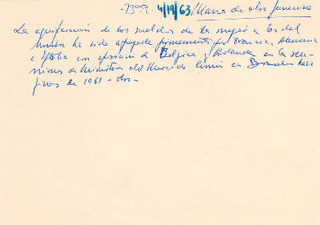 4/19/63 / Mano de obra femenina
La equiparación de los sueldos de la mujer a los del
hombre ha sido apoyada firmemente por Francia, Alemania
e Italia con oposición de Belgica y Holanda en la reu-
nion de Ministros del Mercado Común en Bruselas
de 1961